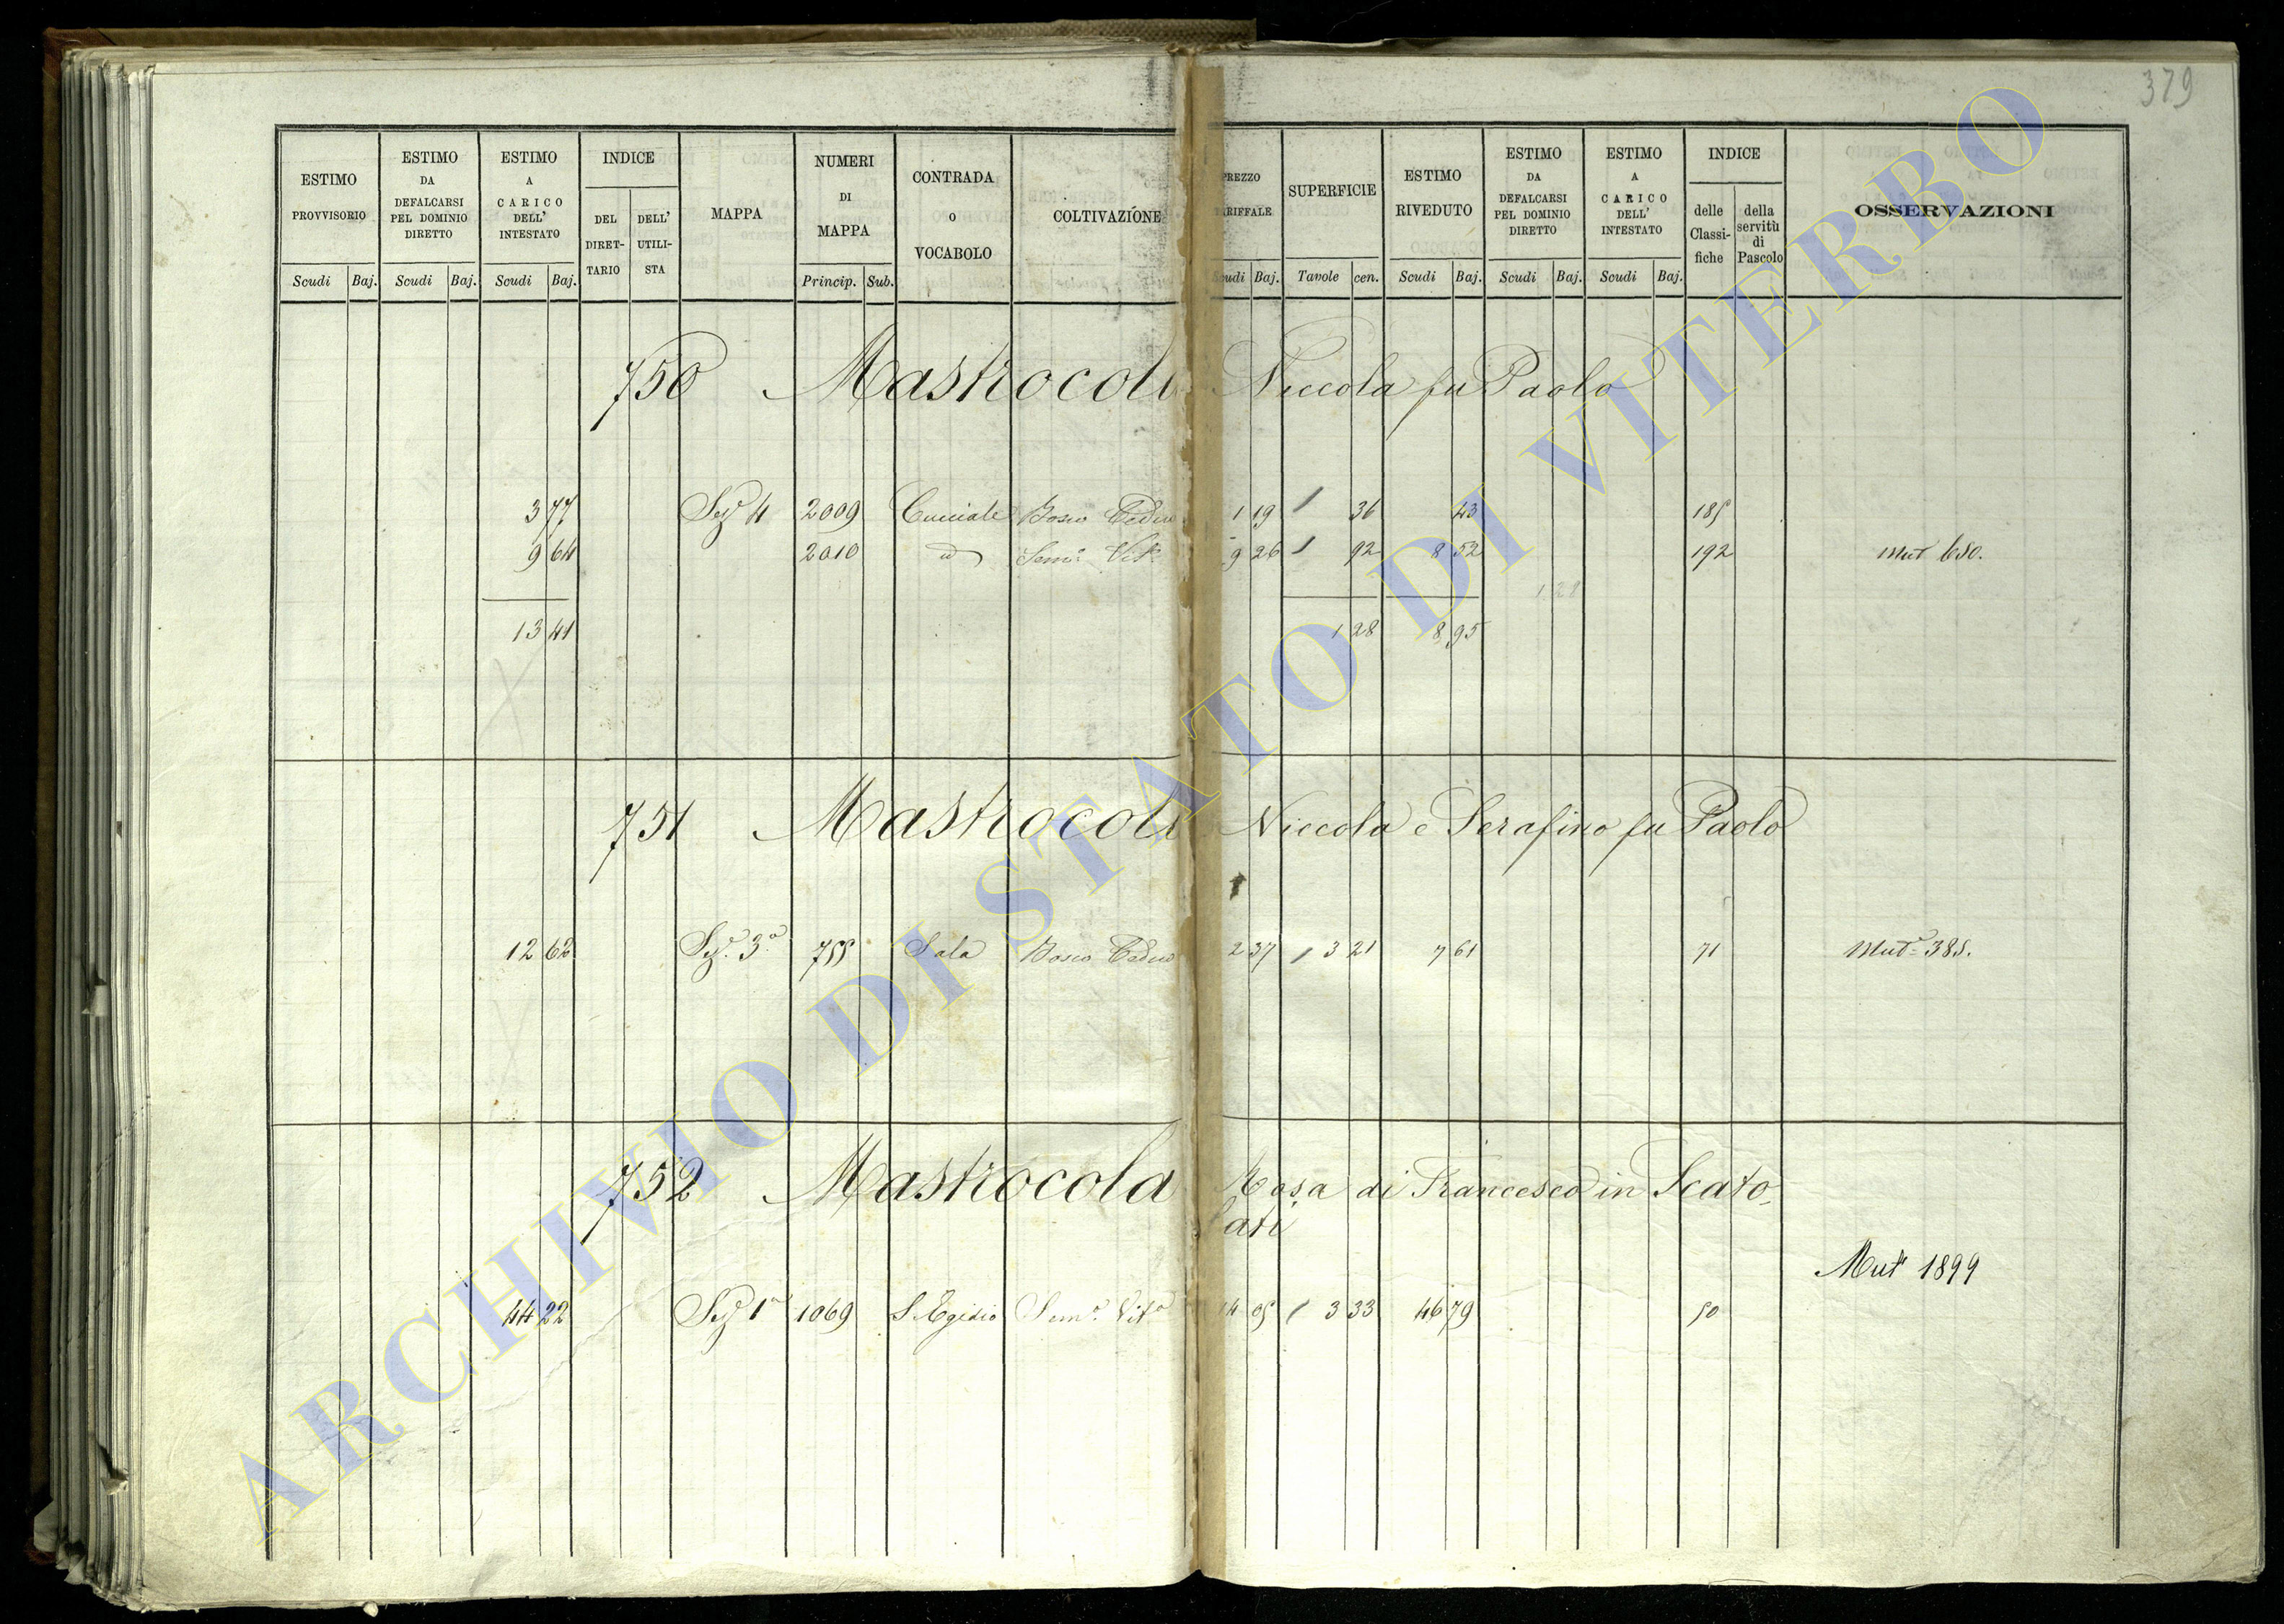 379
ESTIMO PROVVISORIO Scudi Baj.
ESTIMO DA DEFALCARSI PEL DOMINIO DIRETTO Scudi Baj.
ESTIMO A CARICO DELL' INTESTATO Scudi Baj.
INDICE DEL DIRET-TARIO DELL' UTILI-STA
MAPPA
NUMERI DI MAPPA Princip. Sub.
CONTRADA O VOCABOLO
COLTIVAZIONE
PREZZO TARIFFALE Scudi Baj.
SUPERFICIE Tavole cen.
ESTIMO RIVEDUTO Scudi Baj.
ESTIMO DA DEFALCARSI PEL DOMINIO DIRETTO Scudi Baj.
ESTIMO A CARICO DELL' INTESTATO Scudi Baj.
INDICE delle Classi-fiche della servitù di Pascolo
OSSERVAZIONI
750 Mastrocola Niccola fu Paolo
3 77 Sez. 4 2009 Cucciale Bosco Ceduo 1 19 36 43 185
9 64 2010 id Sem.o Vit.o 9 26 92 8 52 192 Mut 680.
1 28
13 41 1 28 8 95
751 Mastrocola Niccola e Serafino fu Paolo
12 62 Sez. 3.a 755 Sala Bosco Ceduo 2 37 3 21 7 61 71 Mut.e 385.
752 Mastrocola Rosa di Francesco in Scato-
lati
Mut 1899
44 22 Sez. 1a 1069 S. Egidio Sem.o Vit.o 14 05 3 33 46 79 50
ARCHIVIO DI STATO DI VITERBO